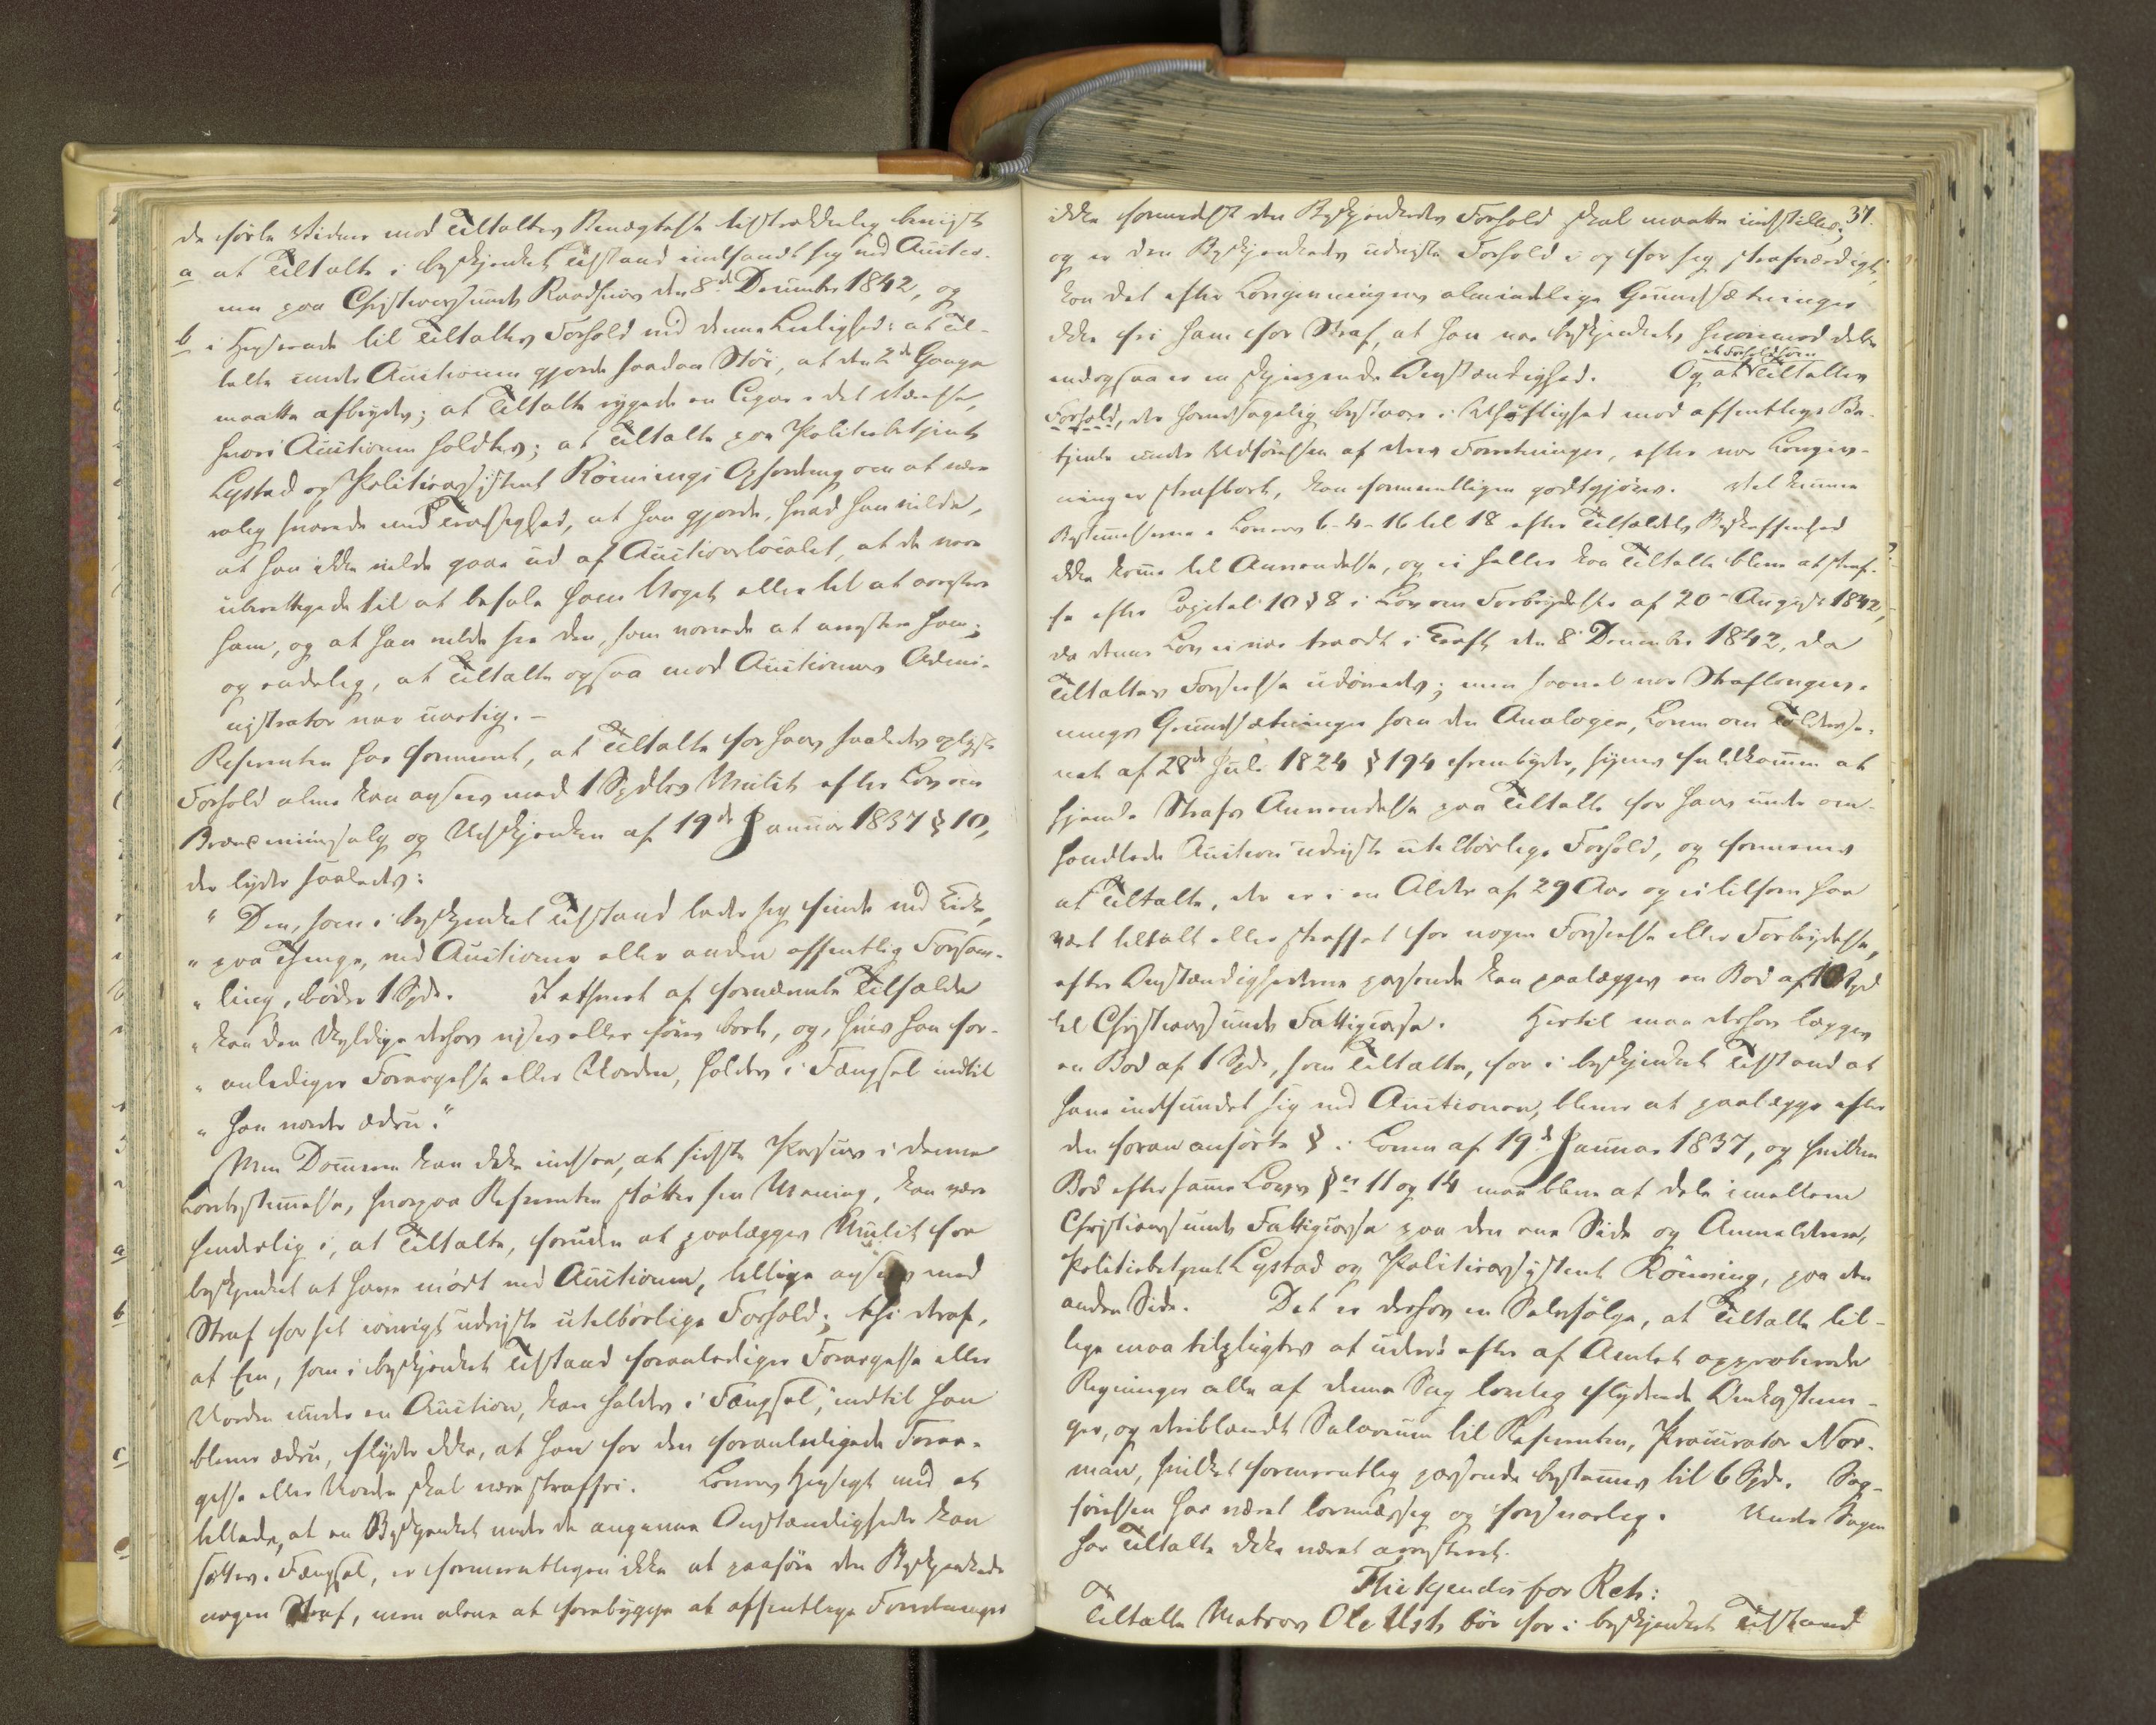 de förte Vidner mod Tiltaltes Benægtelse tilstrækkelig beviist
a at Tiltalte i beskjenket Tilstand indfandt sig ved Auctio-
nen paa Christiansunds Raadhuus den 8de December 1842, og
b i Henseende til Tiltaltes Forhold ved denne Leilighed: at Til-
talte under Auctionen gjorde saadan Stöi, at den 2de Gange
maatte afbrydes; at Tiltalte rygede en Cigar i det Værelse,
hvori Auctionen holdtes; at Tiltalte paa Politiebetjent
Lystad og Politieassistent Rönnings Opfordring om at være
rolig svarede med Trodsighed, at han gjorde, hvad han vilde,
at han ikke vilde gaae ud af Auctionslocalet, at de vare
uberettigede til at befale ham Noget eller til at arrestere
ham, og at han vilde see den, som vovede at arrestere ham;
og endelig, at Tiltalte ogsaa mod Auctionens Admi-
nistrator var uartig. -
Referenten har formeent, at Tiltalte for hans saaledes oplyste
Forhold alene kan ansees med 1 Spdlrs Mulct efter Lov om
Brændeviinsalg og Udskjenken af 19de Januar 1837 § 10,
der lyder saaledes:
" Den, som i beskjenket Tilstand lader sig finde ved Kirke,
" paa Thinge, ved Auctioner eller anden offentlig Forsam-
" ling, böder 1 Spd. I ethvert af fornævnte Tilfælde
" kan den Skyldige derhos vises eller föres bort, og, hvis han for-
" anlediger Forargelse eller Uorden, holdes i Fængsel indtil
" han vorder ædru."
Men Dommeren kan ikke indsee, at sidste Passus i denne
Lovbestemmelse, hvorpaa Referenten stötter sin Mening, kan være
a hinderlig i, at Tiltalte, foruden at paalægges Mulct for
beskjenket at have mödt ved Auctionen, tillige ansees med
b Straf for sit iövrigt udviste utilbörlige Forhold; thi deraf,
at Een, som i beskjenket Tilstand foranlediger Forargelse eller
Uorden under en Auction, kan holdes i Fængsel, indtil han
c bliver ædru, flyder ikke, at han for den foranledigede Forar-
gelse eller Uorden skal være straffri. Lovens Hensigt med at
tillade, at en Beskjenket under de angivne Omstændigheder kan
sættes i Fængsel, er formeentligen ikke at paaföre den Beskjenkede
nogen Straf, men alene at forebygge at offentlige Forretninger
37.
ikke formedelst den Beskjenkedes Forhold skal maatte indstilles;
og er den Beskjenkedes udviste Forhold i og for sig strafværdigt,
kan det efter Lovgivningens almindelige Grundsætninger
ikke frie ham for Straf, at han var beskjenket, hvorimod dette
endogsaa er en skjerpende Omstændighed. Og at Tiltaltes
et Forhold som
Forhold, der hovedsagelig bestaaer i Uhöflighed mod offentlige Be-
tjente under Udförelsen af deres Forretninger, efter vor Lovgiv-
ning er strafbart, kan formeentligen godtgjöres. Vel kunne
Bestemmelserne i Lovens 6-4-16 til 18 efter Tilfældets Beskaffenhed
ikke komme til Anvendelse, og ei heller kan Tiltalte blive at straf-
fe efter Capitel 10 § 8 i Lov om Forbrydelser af 20 August 1842,
da denne Lov ei var traadt i Kraft den 8 December 1842, da
Tiltaltes Forseelse udövedes; men saavel vor Straflovgiv-
nings Grundsætninger som den Analogie, Loven om Toldvæse-
net af 28de Juli 1824 § 194 frembyder, synes fuldkommen at
hjemle Strafs Anvendelse paa Tiltalte for hans under om-
handlede Auction udviste utilbörlige Forhold, og formenes
at Tiltalte, der er i en Alder af 29 Aar og ei tilforn har
været tiltalt eller straffet for nogen Forseelse eller Forbrydelse,
efter Omstændighederne passende kan paalægges en Bod af 10 Spd
til Christiansunds Fattigcasse. Hertil maa derhos lægges
en Bod af 1 Spd, som Tiltalte, for i beskjenket Tilstand at
have indfundet sig ved Auctionen, bliver at paalægge efter
den foran anförte § i Loven af 19de Januar 1837, og hvilken
Bod efter samme Lovs §er 11 og 14 maa blive at dele imellem
Christiansunds Fattigcasse paa den ene Side og Anmelderne,
Politiebetjent Lystad og Politieassistent Rönning, paa den
anden Side. Det er derhos en Selvfölge, at Tiltalte til-
lige maa tilpligtes at udrede efter af Amtet approberede
Regninger alle af denne Sag lovlig flydende Omkostnin-
ger, og deriblandt Salarium til Referenten, Procurator Nor-
man, hvilket formeentlig passende bestemmes til 6 Spd. Sag-
förelsen har været lovmæssig og forsvarlig. Under Sagen
har Tiltalte ikke været arresteret.
Thi kjendes for Ret:
Tiltalte Matros Ole Ush bör for i beskjenket Tilstand